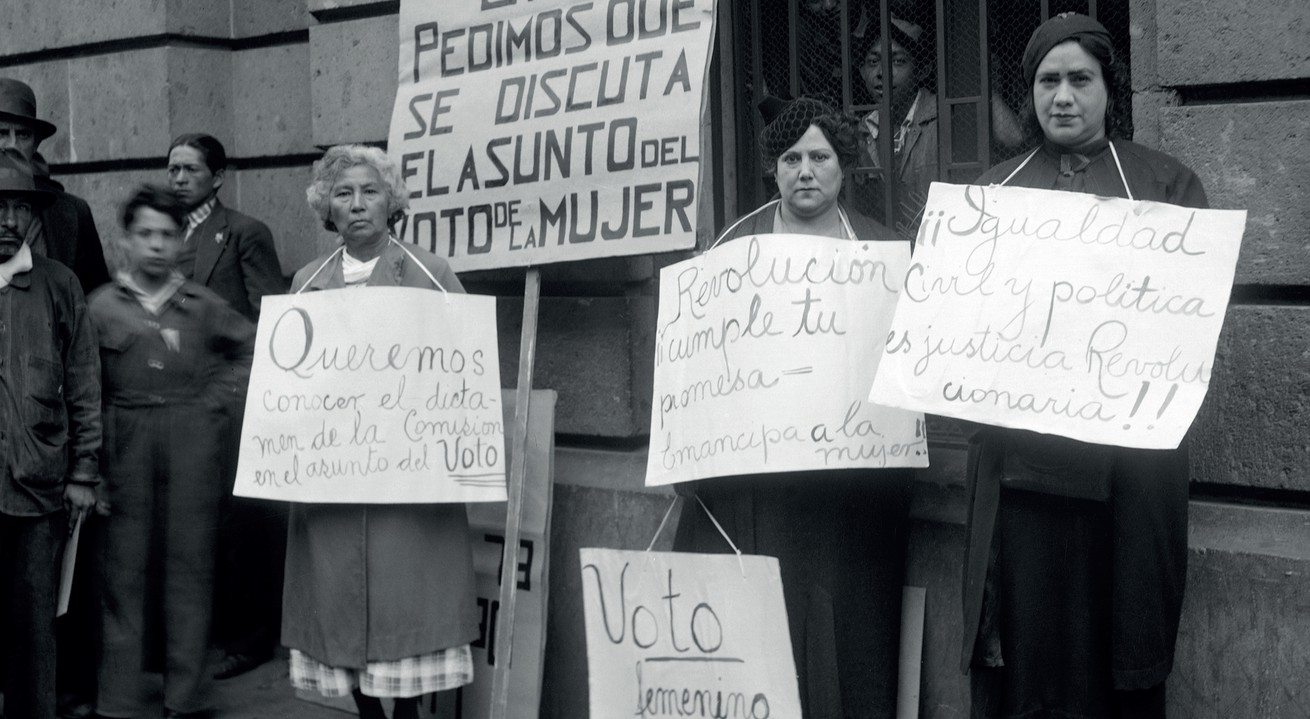 PEDIMOS QUE
SE DISCUTA
EL ASUNTO DEL
VOTO DE LA MUJER
Queremos
conocer el dicta-
men de la Comision
en el asunto del Voto
Revolución
¡¡cumple tu
promesa=
Emancipa a la
mujer!!
¡¡Igualdad
Civil y politica
es justicia Revolu
cionaria!!
Voto
femenino